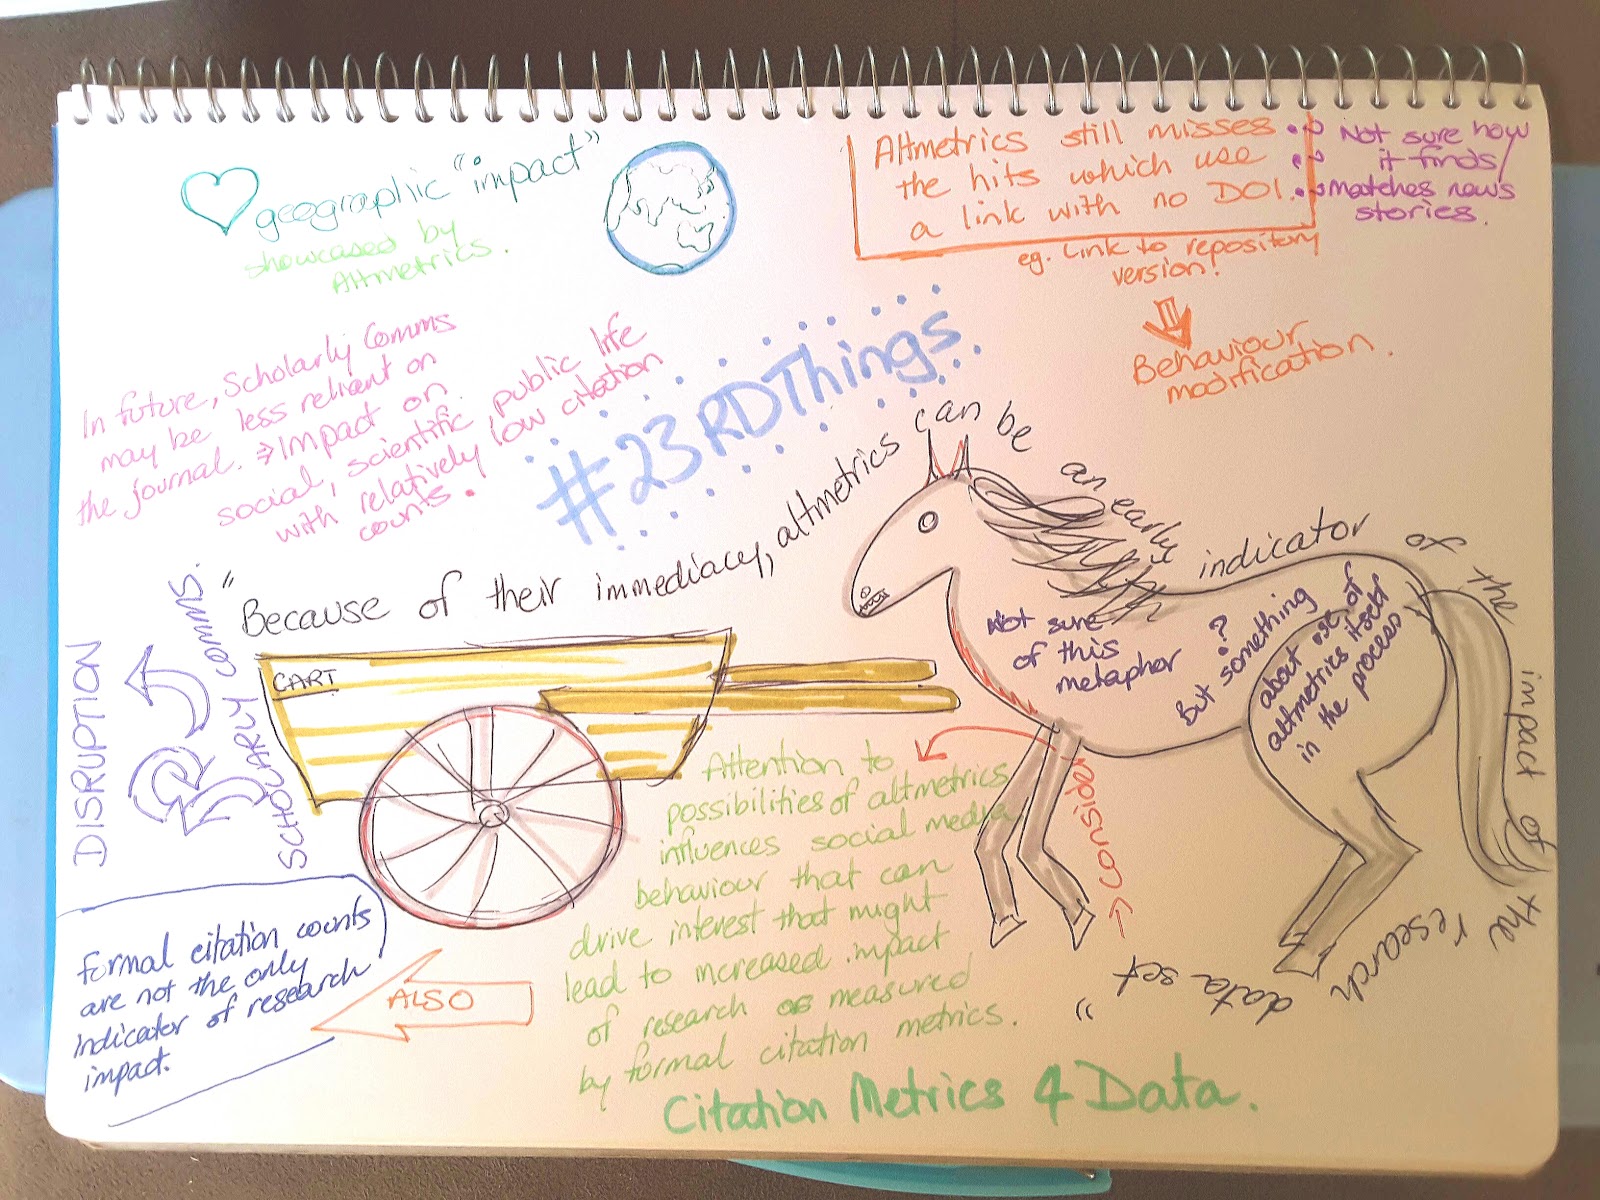 geographic "impact"
showcased by
Altmetrics.
Altmetrics still misses
the hits which use
a link with no DOI.
eg. Link to repository
version!
Behaviour
modification.
Not sure how
it finds/
matches news
stories.
In future, Scholarly Comms
may be less reliant on
the journal. ⇒ Impact on
social, scientific, public life
with relatively low citation
counts.
#23RDThings
"Because of their immediacy, altmetrics can be an early indicator of the impact of the research data set"
DISRUPTION
SCHOLARLY COMMS.
CART
Not sure
of this
metaphor ?
But something
about use of
altmetrics itself
in the process
→ consider →
Attention to
possibilities of altmetrics
influences social media
behaviour that can
drive interest that might
lead to increased impact
of research as measured
by formal citation metrics.
ALSO
formal citation counts
are not the only
indicator of research
impact.
Citation Metrics 4 Data.